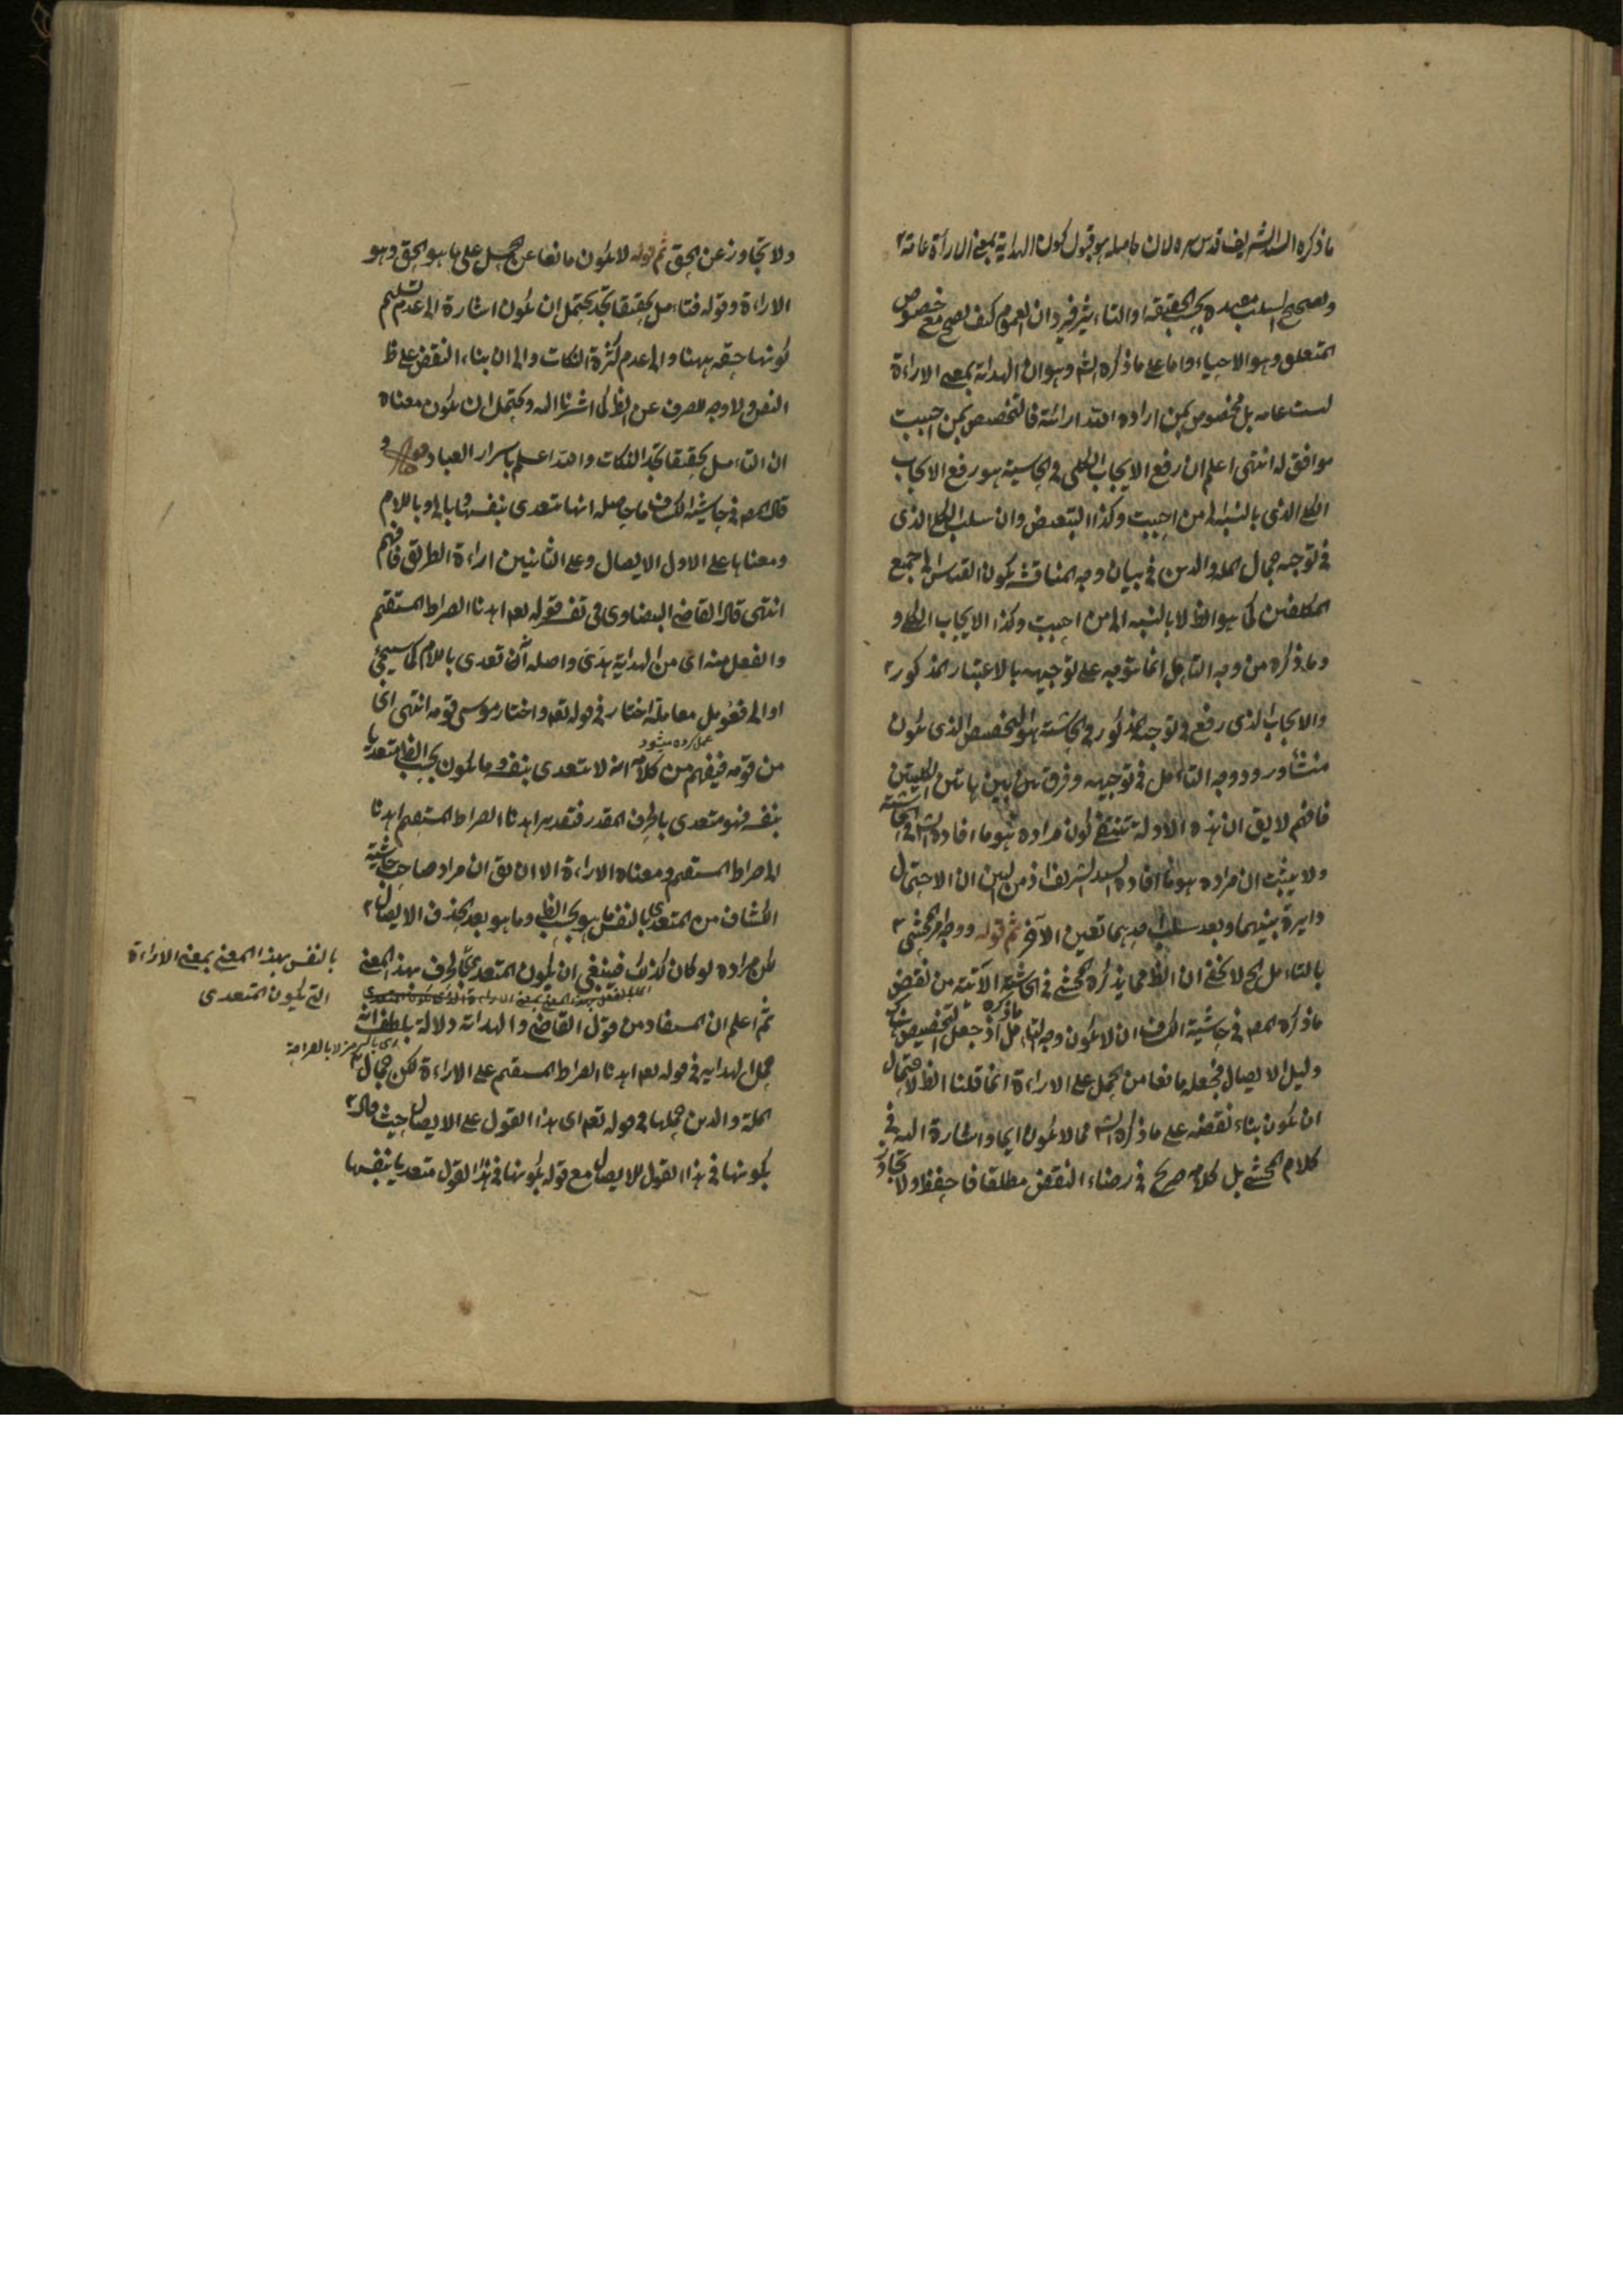 ما ذكره السيد الشريف قدس سره لان حاصله هو قبول كون الهداية بمعنى الاراءة عامة
وتصحيح السلب بقيده بحسب الحقيقة او التاثير فيرد ان العموم كيف يصح مع خصوص
المتعلق وهو الاحياء واما على ما ذكره الش وهو ان الهداية بمعنى الاراءة
ليست عامة بل مخصوص بمن اراد الله ارائته فالتخصيص بمن احببت
موافق له انتهى اعلم ان رفع الايجاب الكلى فى الحاشية هو رفع الايجاب
الكلى الذى بالنسبة الى من احببت وكذا التبعيض وان سلب الكل الذى
فى توجيه جمال الملة والدين فى بيان وجه المناقشة يكون القدس الى جميع
المكلفين كما هو الظ لا بالنسبة الى من احببت وكذا الايجاب الكلى و
وما ذكره من وجه التامل انما يتوجه على توجيهه بالاعتبار المذكور
والايجاب الذى رفع فى توجيه المذكور فى الحاشية هو التخصيص الذى يكون
منشأ ورود وجه التأمل فى توجيهه وفرق بين هاتين الكليتين
فافهم لا يق ان هذه الادلة تنتفى كون مراده هو ما افاده الش فى الحاشية
ولا يثبت ان مراده هو ما افاده السيد الشريف اذ من البين ان الاحتمال
دايرة بينهما وبعد سلب احدهما تعين الآخر ثم قوله ووجه المحشى
بالتامل الخ لا يخفى ان الظ مما يذكره المحشى فى الحاشية الآتية من نقض
ما ذكره المص فى حاشية الكشاف ان لا يكون وجه التامل ما ذكره اذ جعل التخصيص هناك
دليل الايصال فجعله مانعا من الحمل على الاراءة انما قلنا الظ لاحتمال
ان يكون بناء نقضه على ما ذكره الش مما لا يكون ايما واشارة اليه فى
كلام المحشى بل كلامه صريح فى رضاء النقض مطلقا فاحفظ ولا تجاوز
ولا تجاوز عن الحق ثم قوله لا يكون مانعا عن الحمل على ما هو الحق وهو
الاراءة وقوله فتامل حقيقا تجد يحتمل ان يكون اشارة الى عدم تسليم
كونها حقه ههنا والى عدم كثرة النكات والى ان بناء النقض على ظ
النص ولا وجه للصرف عن الظ كما اشرنا اليه ويحتمل ان يكون معناه
ان التامل حقيقا تجد النكات والله اعلم باسرار العباد
قال المص فى حاشية الكشاف ما حاصله انها تتعدى بنفسها وبالى وباللام
ومعناها على الاول الايصال وعلى الثانيين اراءة الطريق فافهم
انتهى قال القاضى البيضاوى فى تفسير قوله تع اهدنا الصراط المستقيم
والفعل منه اى من الهداية هدى واصله ان تعدى باللام كما سيجئ
او الى فعومل معاملة اختار فى قوله تع واختار موسى قومه انتهى اى
عمل كرده ميشود
من قومه فيفهم من كلامه انه لا يتعدى بنفسه وما يكون بحسب الظ متعديا
بنفسه فهو متعدى بالحرف المقدر فتقدير اهدنا الصراط المستقيم اهدنا
الى صراط المستقيم ومعناه الاراءة الا ان يق ان مراد صاحب حاشية
الكشاف من المتعدى بالنفس ما هو بحسب الظ وما هو بعد الحذف الايصال
لكن مراده لو كان كذلك فينبغى ان يكون المتعدى بالحرف بهذا المعنى
بالنفس بهذا المعنى بمعنى الاراءة
التى يكون المتعدى
ثم اعلم ان المستفاد من قول القاضى والهداية دلالة بلطف انه
اى بالرمز لا بالصراحة
حمل الهداية فى قوله تع اهدنا الصراط المستقيم على الاراءة لكن جمال
الملة والدين حملها فى قوله تع اى هذا القول على الايصال حيث قال
بكونها فى هذا القول للايصال مع قوله بكونها فى هذا القول متعديا بنفسها